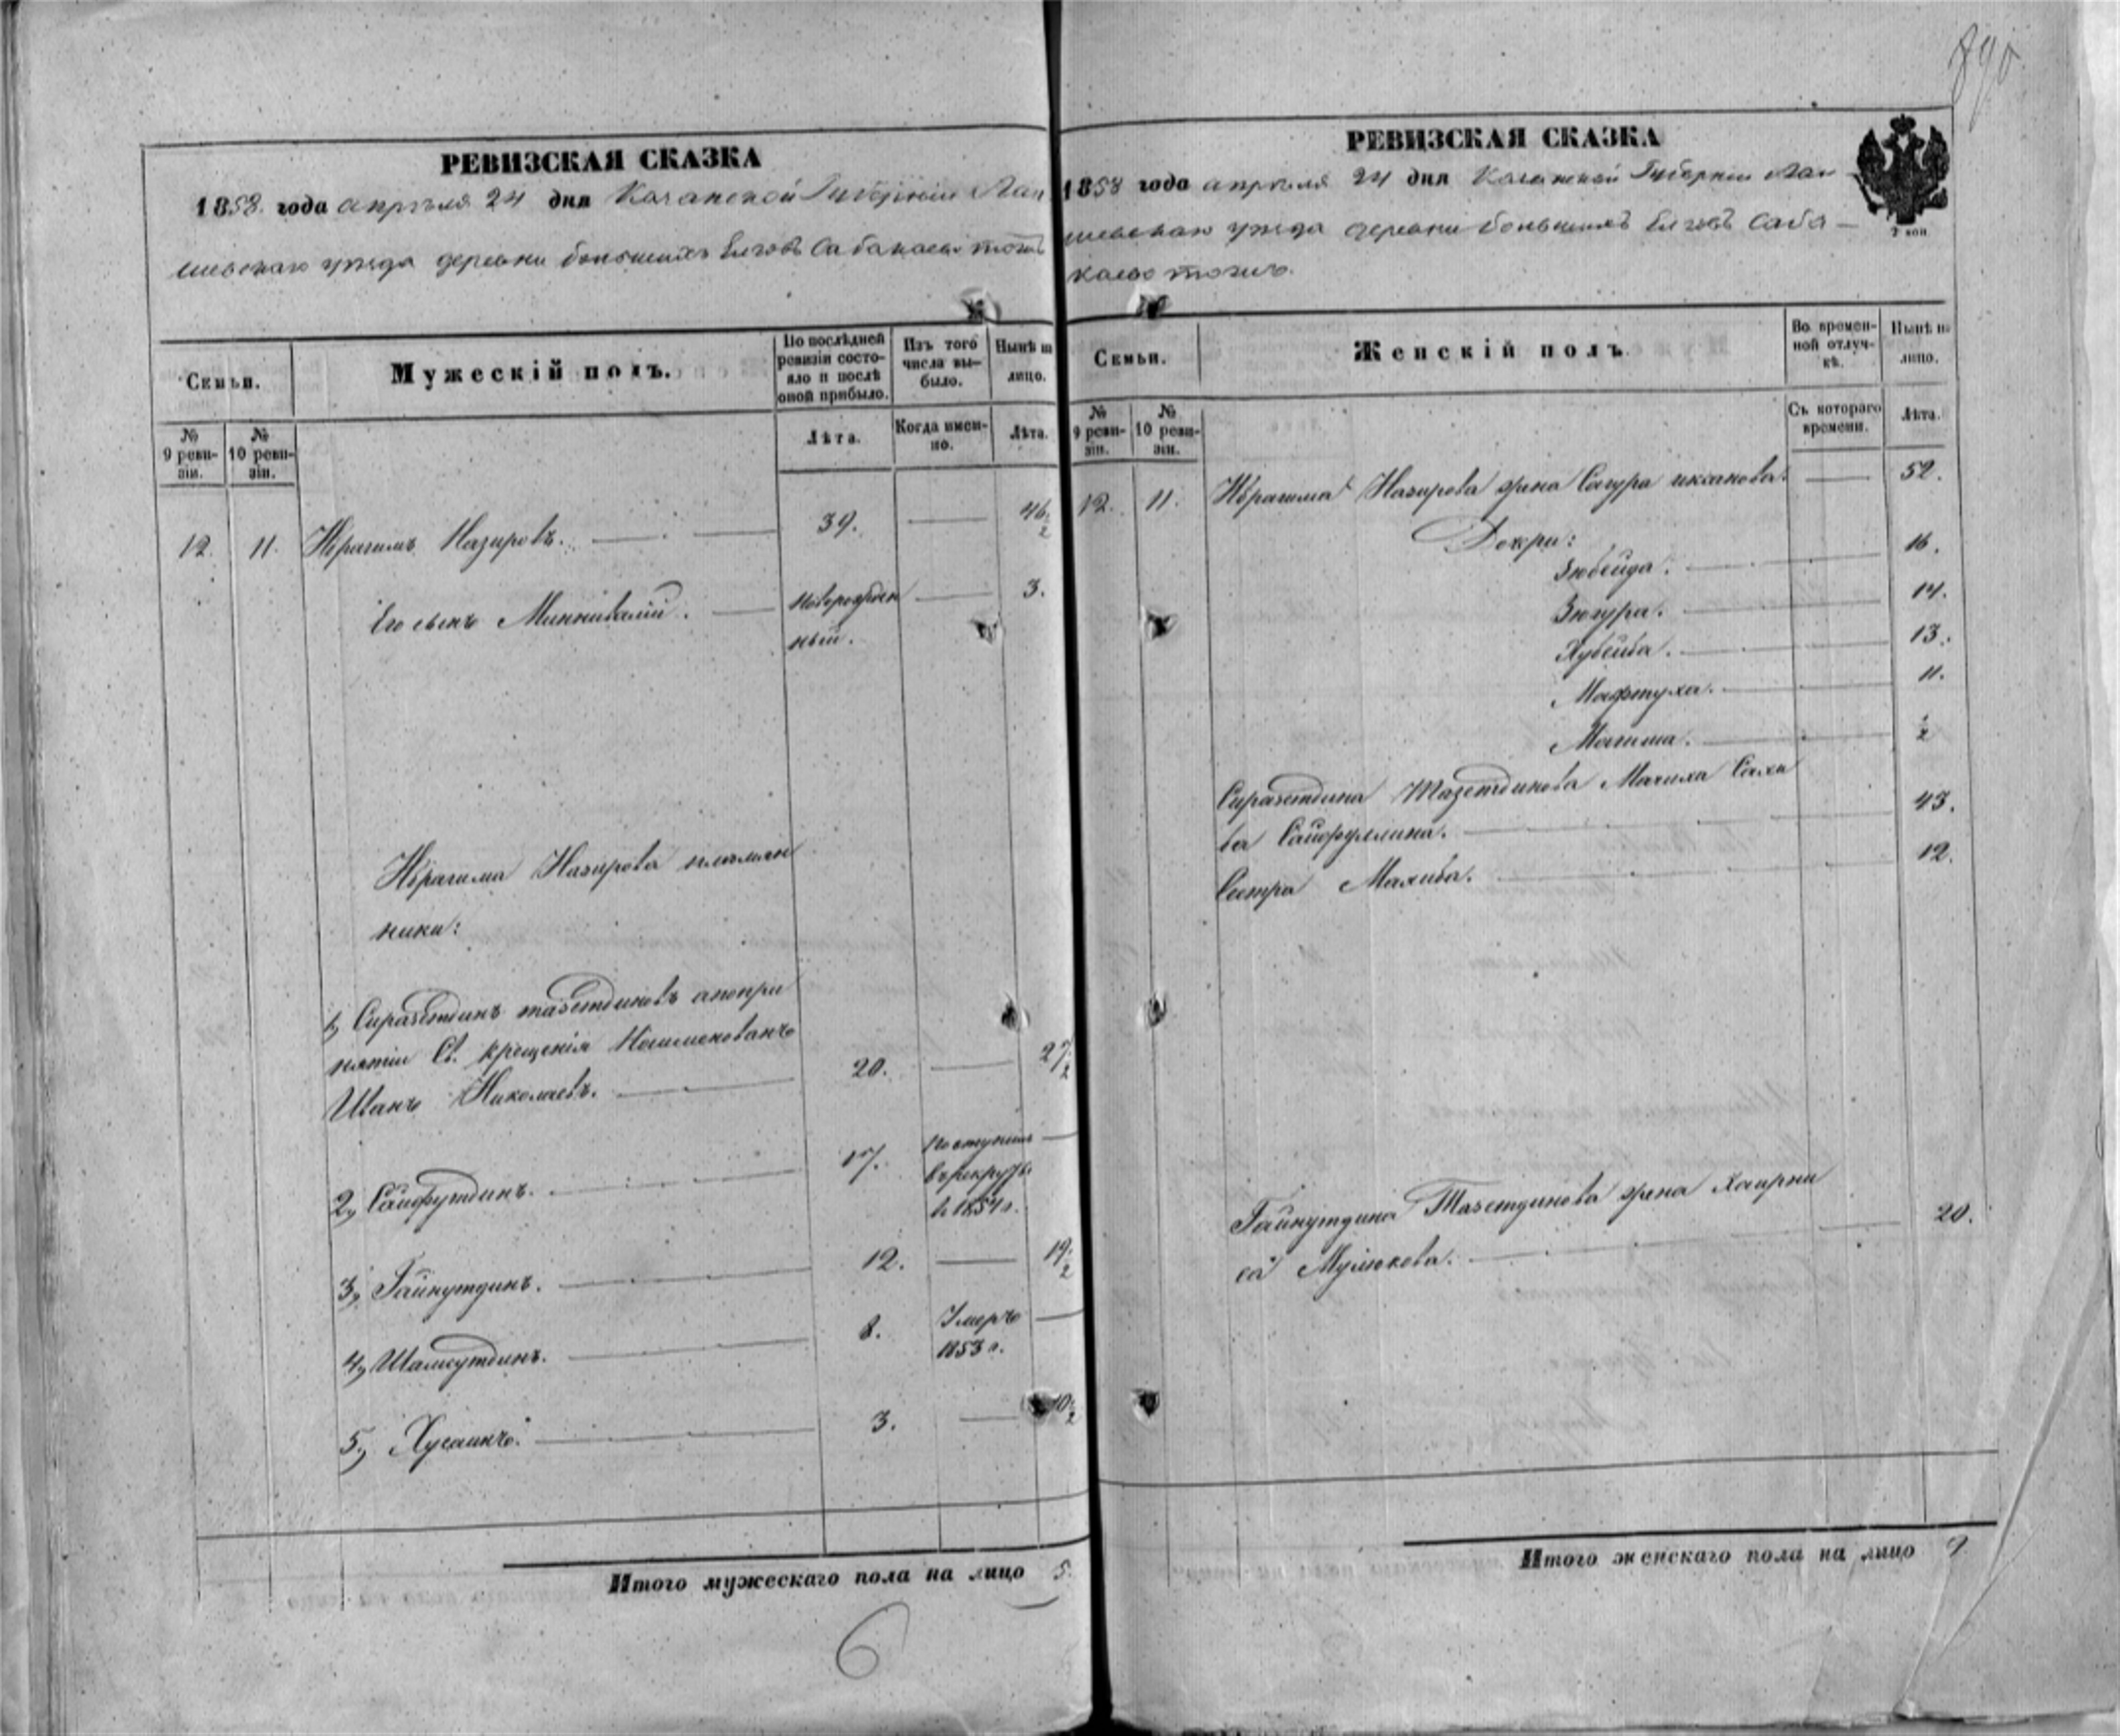 890
РЕВИЗСКАЯ СКАЗКА
1858 года апреля 24 дня Казанской Губернии Лаи
шевскаго уезда деревни большихъ Елговъ Сабакаево тожъ
Семьи.
Мужескій полъ.
По послѣдней ревизіи состояло и послѣ оной прибыло.
Изъ того числа выбыло.
Нынѣ на лицо.
№ 9 ревизіи.
№ 10 ревизіи.
Лѣта.
Когда именно.
Лѣта.
12. 11. Ибрагимъ Назировъ. 39. 46 1/2
Его сынъ Миннивалій. новорожден 3.
ный.
Ибрагима Назирова племян
ники:
1, Сиразетдинъ тазетдиновъ апопри
нятіи Св. крещенія Наименованъ
Иванъ Николаевъ. 20. 27 1/2
2, Сайфутдинъ. 17. Поступилъ
в рекруты
в 1854 г.
3, Гайнутдинъ. 12. 19 1/2
4, Шамсутдинъ. 8. Умеръ
1853 г.
5, Хусаинъ. 3. 10 1/2
Итого мужескаго пола на лицо 5.
6
РЕВИЗСКАЯ СКАЗКА
1858 года апреля 24 дня Казанской Губернии Лаи
шевскаго уезда деревни большихъ Елговъ Саба-
каево тожъ.
2 коп
Семьи.
Женскій полъ
Во временной отлучкѣ.
Нынѣ на лицо.
№ 9 ревизіи.
№ 10 ревизіи.
Съ котораго времени.
Лѣта.
12. 11. Ибрагима Назирова жена Сагура иксанова. 52.
Дочери:
Зюбейда. 16.
Зюгура. 14.
Хубейба. 13.
Мафтуха. 11.
Магиша. 1/2
Сиразетдина Тазетдинова Мачиха Сахи
ба Сайфуллина. 43.
Сестра Махиба. 12.
Гайнутдина Тазетдинова жена Хаирни
са Мулюкова. 20.
Итого женскаго пола на лицо 9